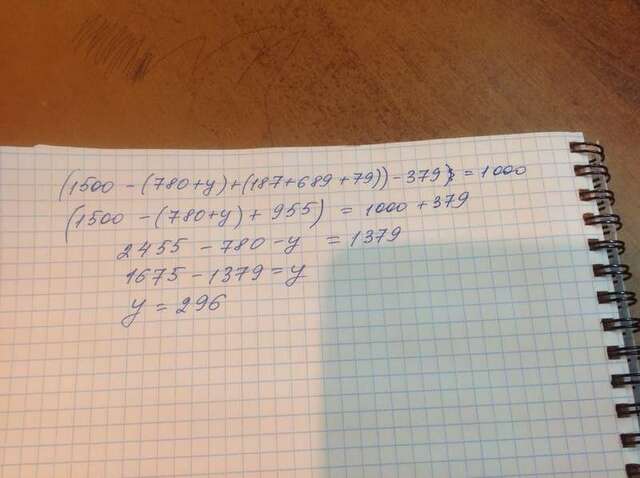 (1500 - (780+y)+(187+689+79))-379) = 1000
(1500 - (780+y) + 955) = 1000 + 379
2455 - 780 - y = 1379
1675 - 1379 = y
y = 296